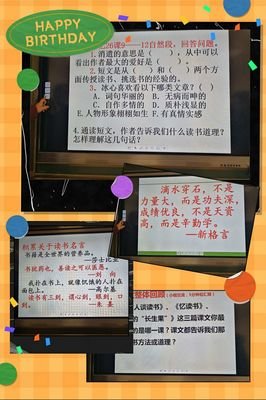 HAPPY
BIRTHDAY
26课9——12自然段，回答问题。
1.消遣的意思是（ ），从中可以
看出作者最大的爱好是（ ）。
2.短文是从（ ）和（ ）两个方
面传授读书、挑选书的经验的。
3.冰心喜欢看以下哪类文章？（ ）
A.词句华丽的 B.无病而呻的
C.自作多情的 D.质朴浅显的
E.人物形象栩栩如生 F.有真情实感
4.通读短文，作者告诉我们什么读书道理？
怎样理解这几句话？
滴水穿石，不是
力量大，而是功夫深，
成绩优良，不是天资
高，而是辛勤学。
——新格言
积累关于读书名言
书籍是全世界的营养品。
——莎士比亚
书犹药也，善读之可以医愚。
——刘 向
我扑在书上，就像饥饿的人扑在
面包上。 ——高尔基
读书有三到，谓心到，眼到，口
到。 ——朱 熹
整体回顾
人谈读书》、《忆读书》、
的“长生果”》这三篇课文你最
的是哪一课？课文都告诉我们那
书方法或道理？